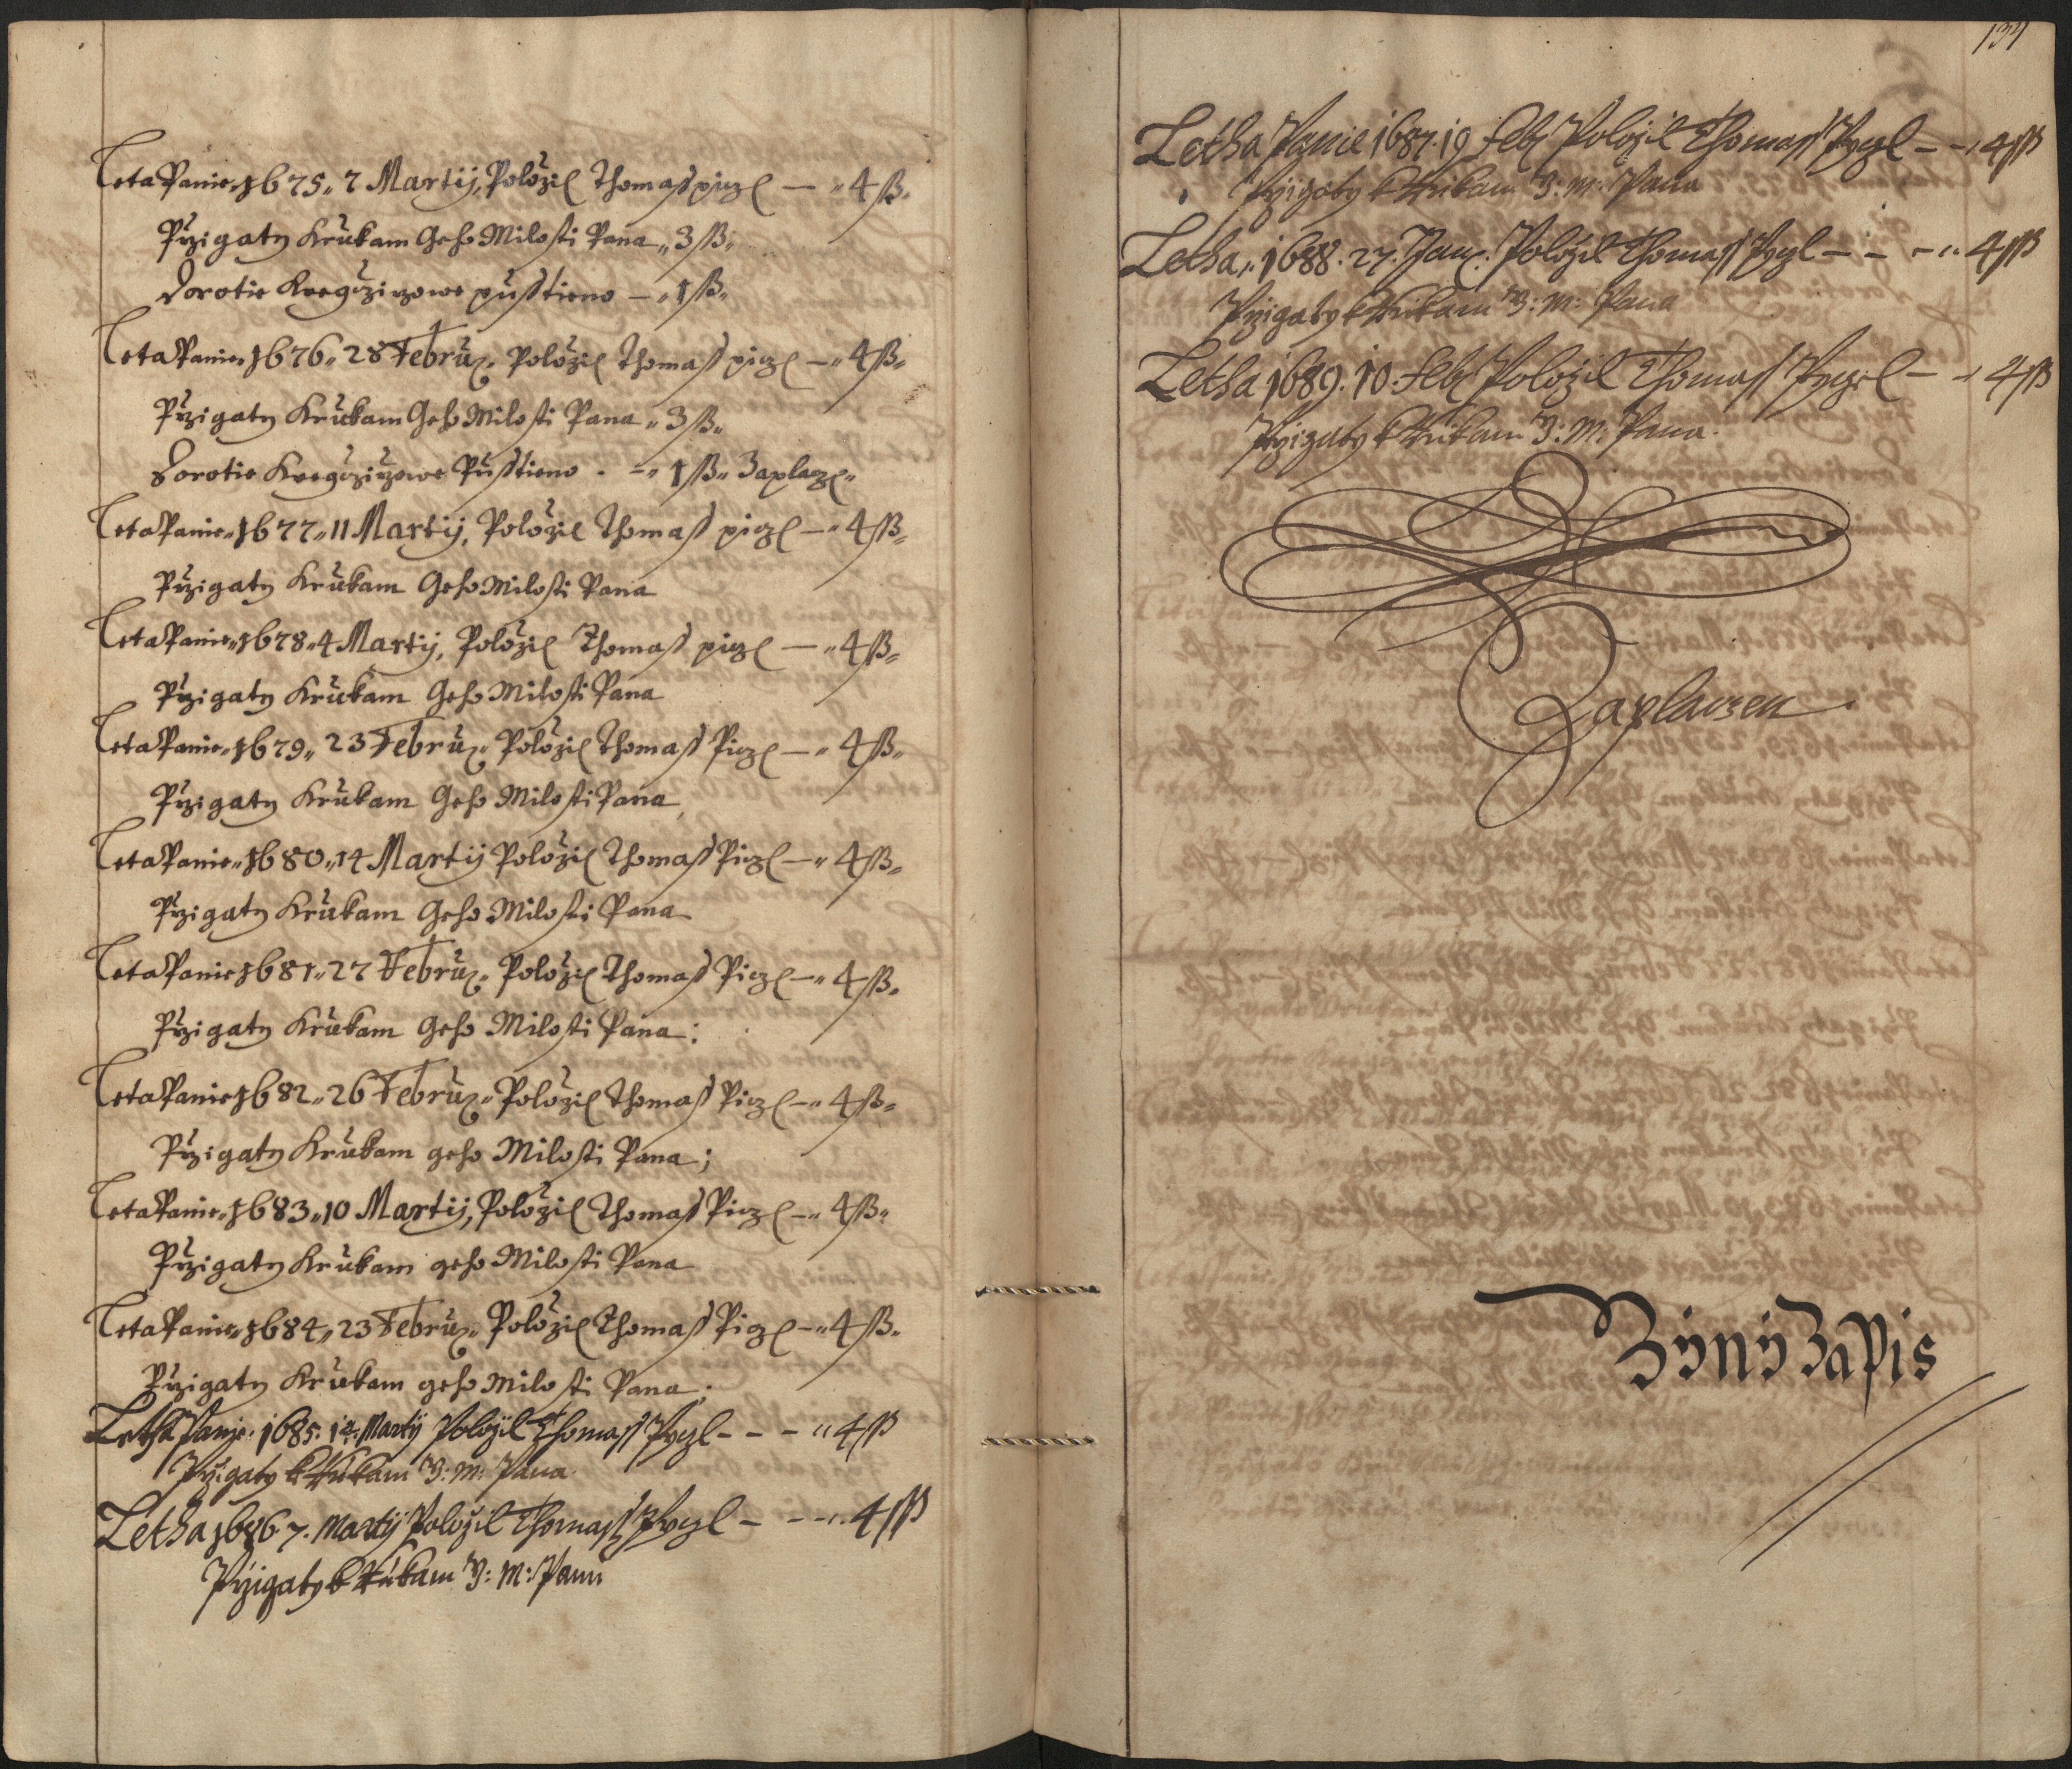 Leta Panie 1675 „ 7 Martij, Položil Thomaß piczl — „ 4 ßß.
Przigaty k Rukam Geho Milosti Pana „ 3 ßß „
Dorotie pusstieno — „ 1 ßß „
Leta Panie 1676 „ 28 Februar. Položil Thomaß piczl — „ 4 ßß „
Przigaty k Rukam Geho Milosti Pana „ 3 ßß „
Dorotie Pusstieno . — „ 1 ßß „ Zaplacz „
Leta Panie „ 1677 „ 11 Martij, Položil Thomaß piczl — „ 4 ßß „
Przigaty k Rukam Geho Milosti Pana
Leta Panie „ 1678 „ 4 Martij, Položil Thomaß piczl — „ 4 ßß „
Przigaty k Rukam Geho Milosti Pana
Leta Panie „ 1679 „ 23 Februar „ Položil Thomaß Piczl — „ 4 ßß „
Przigaty k Rukam Geho Milosti Pana
Leta Panie „ 1680 „ 14 Martij Položil Thomaß Piczl — „ 4 ßß „
Przigaty k Rukam Geho Milosti Pana
Leta Panie 1681 „ 27 Februar „ Položil Thomaß Piczl — „ 4 ßß „
Przigaty k Rukam Geho Milosti Pana :
Leta Panie 1682 „ 26 Februar „ Položil Thomaß Piczl — „ 4 ßß „
Przigaty k Rukam geho Milosti Pana ;
Leta Panie „ 1683 „ 10 Martij, Položil Thomaß Piczl — „ 4 ßß „
Przigaty k Rukam geho Milosti Pana
Leta Panie „ 1684 „ 23 Februar „ Položil Thomaß Piczl — „ 4 ßß „
Przigaty k Rukam geho Milosti Pana ;
Letha Panie . 1685 . Martij Položil Thomass Pyczl - - - „ 4 ßß
Przigaty k Rukam J: M: Pana
Letha 1686 . 7 . Martij Položil Thomass Pyczl - - - „ 4 ßß
Przigaty k Rukam J: M: Pana
Letha Panie 1687 . 19 Feb Položil Thomass Pyczl - - „ 4 ßß
Przigaty k Rukam J: M: Pana
Letha „ 1688 . 27 . Jan . Položil Thomass Pyczl - - - „ 4 ßß
Przigaty k Rukam J: M: Pana
Letha 1689 . 10 . Feb Položil Thomass Pyczl - - 4 ßß
Przigaty k Rukam J: M: Pana .
Zaplaczen
Giny Zapis